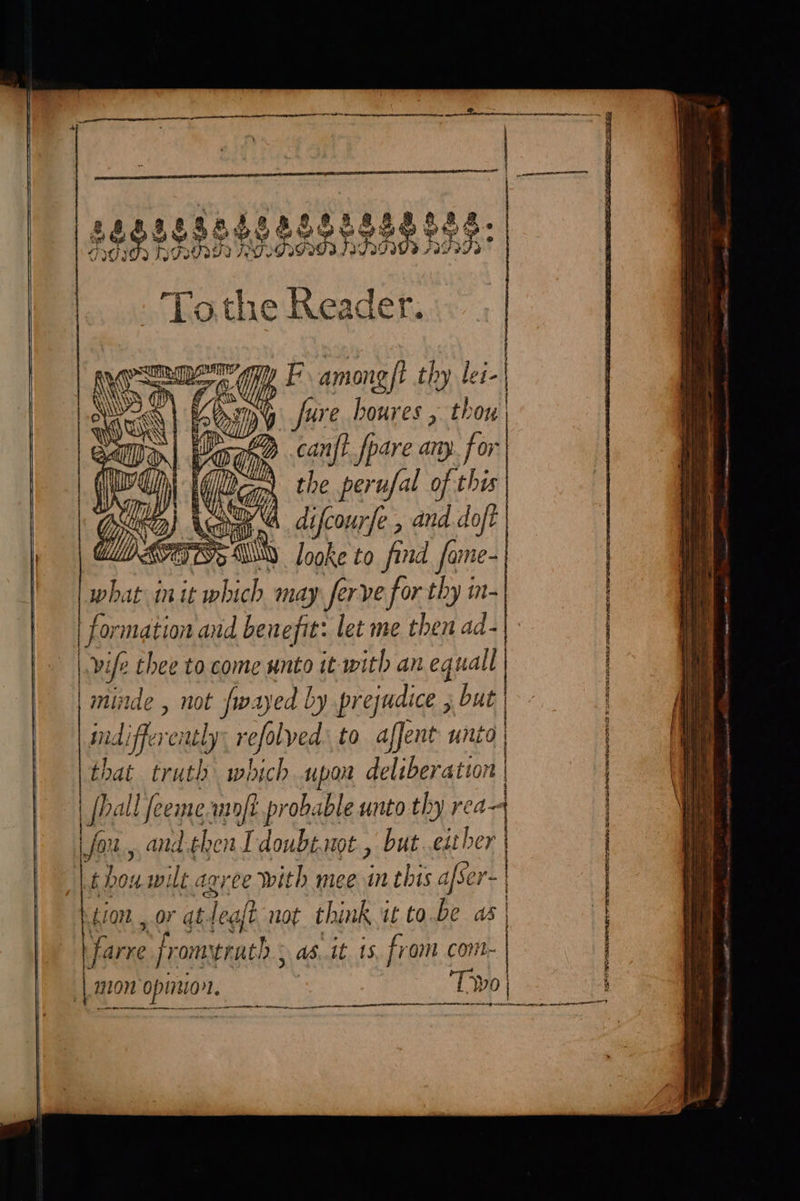 To the Reader.
IF amongſt thy lei-
ſure houres, thou
canſt ſpare any for
the peruſal of this
diſcourſe, and doſt
looke to find ſome-
what in it which may ſerve for thy in-
formation and benefit: let me then ad-
viſe thee to come unto it with an equall
minde, not ſwayed by prejudice, but
indifferently reſolved to aſſent unto
that truth which upon deliberation
ſhall ſeeme moſt probable unto thy rea-
ſon, and then I doubt not, but either
thou wilt agree with mee in this aſſer-
tion, or at leaſt not think it to be as
farre from truth, as it is from com-
mon opinion.
Two